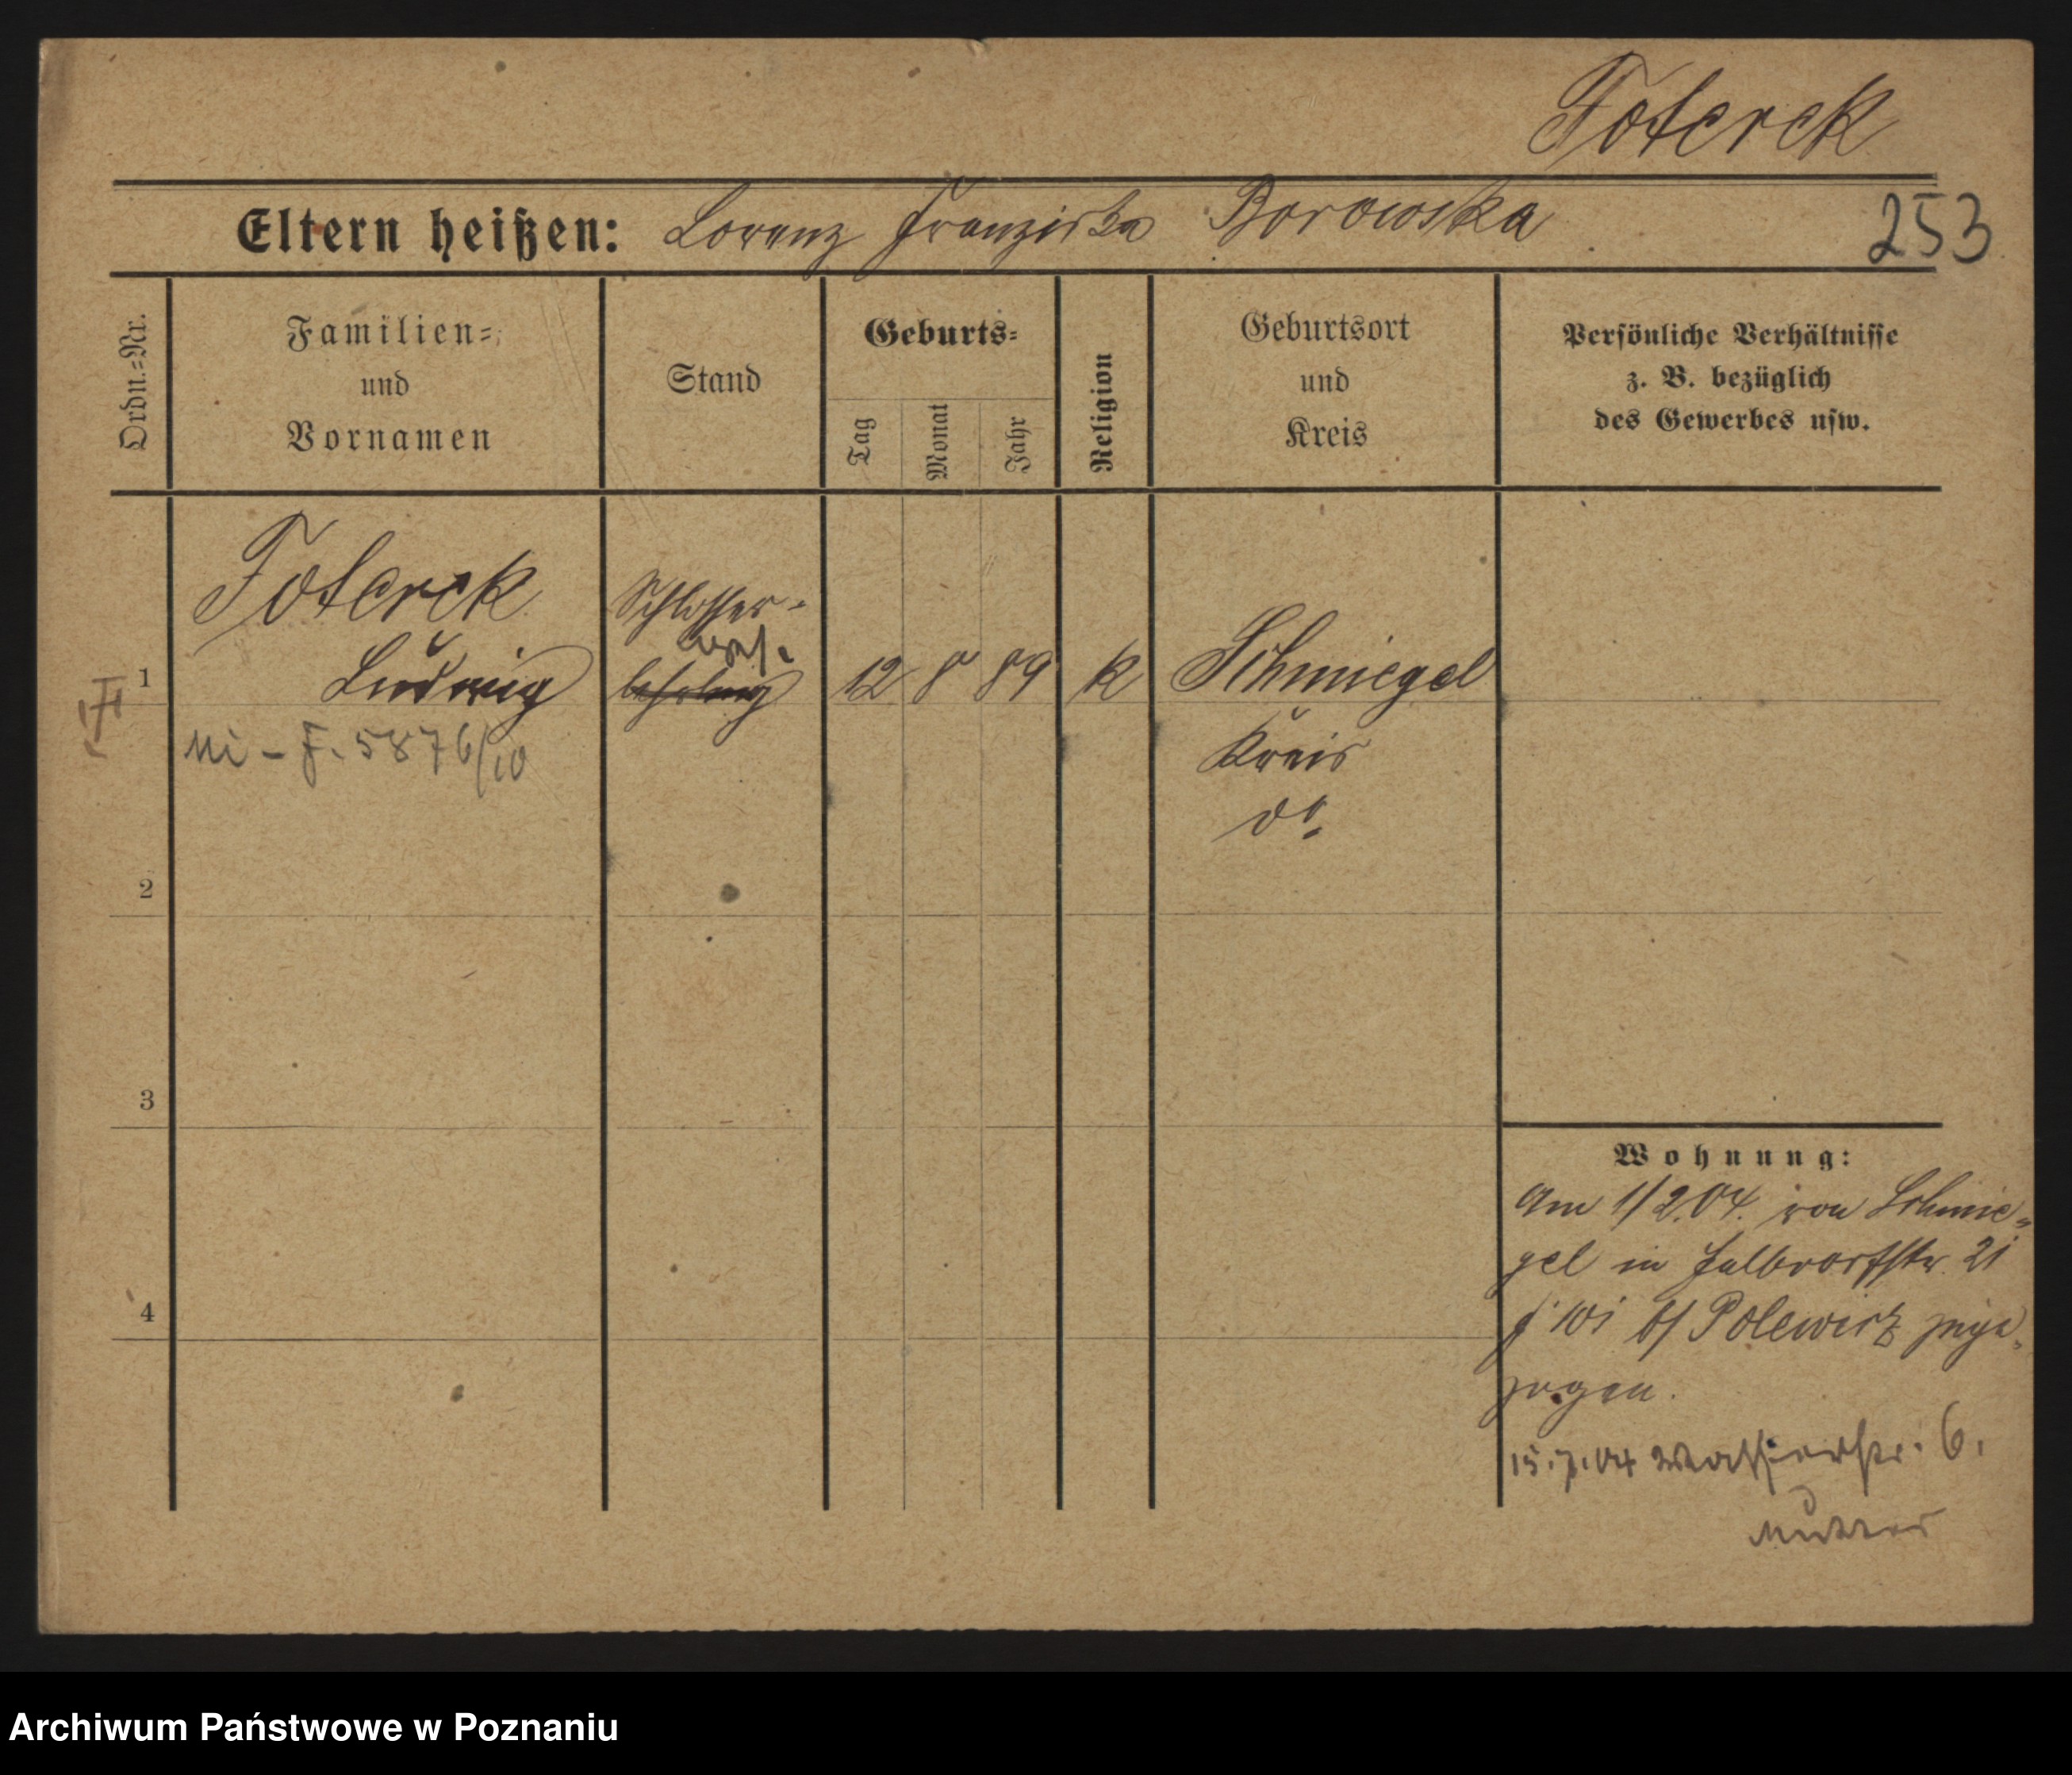 Toterek
Eltern heißen: Lorenz Franziska Borowska
253
Ordn.-Nr.
Familien- und Vornamen
Stand
Geburts-
Tag
Monat
Jahr
Religion
Geburtsort und Kreis
Persönliche Verhältnisse z. B. bezüglich des Gewerbes usw.
Toterek
Schlosser-
1 Ludwig lehrling 12 8 89 k Schmiegel
5876/10
Kreis
do.
2
3
4
Wohnung:
Am 1/2.04. von Schmie-
gel in Halbdorfstr. 21
b/ Polewicz zuge-
zogen.
15.7.04 Wasserstr. 6.
Mutter
Archiwum Państwowe w Poznaniu